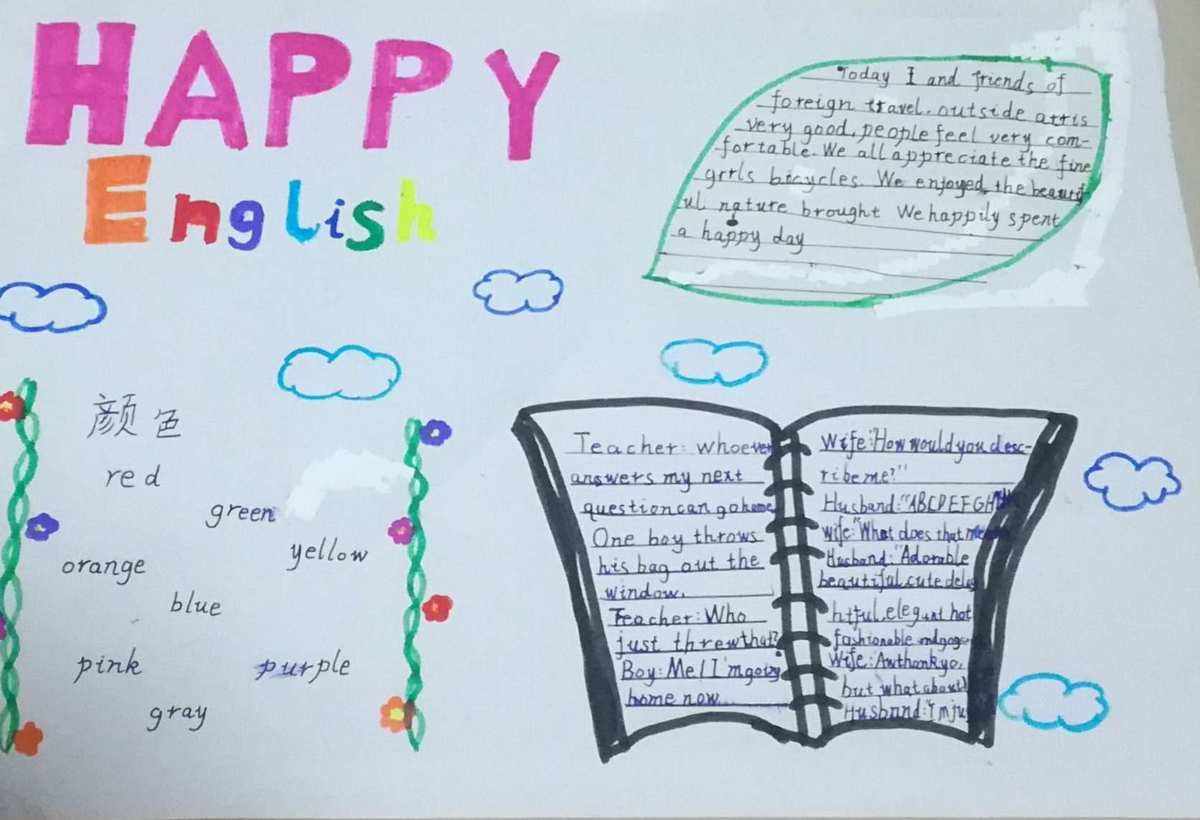 HAPPY
English
Today I and friends of
foreign travel. outside artis
very good, people feel very com-
fortable. We all appreciate the fine
grrls bicycles. We enjoyed the beautif
ul nature brought We happily spent
a happy day
颜色
red
green
yellow
orange
blue
pink
purple
gray
Teacher: whoever
answers my next
question can go home
One boy throws
his bag out the
window.
Teacher: Who
just threw that?
Boy: Me! I'm going
home now...
Wife: "How would you desc-
ribe me?"
Husband: "ABCDEFGH
Wife: "What does that mean
Husband: "Adorable
beautiful, cute delig
htful, elegant hot
fashionable
Wife: Aw thank yo,
but what about
Husband: I'm ju